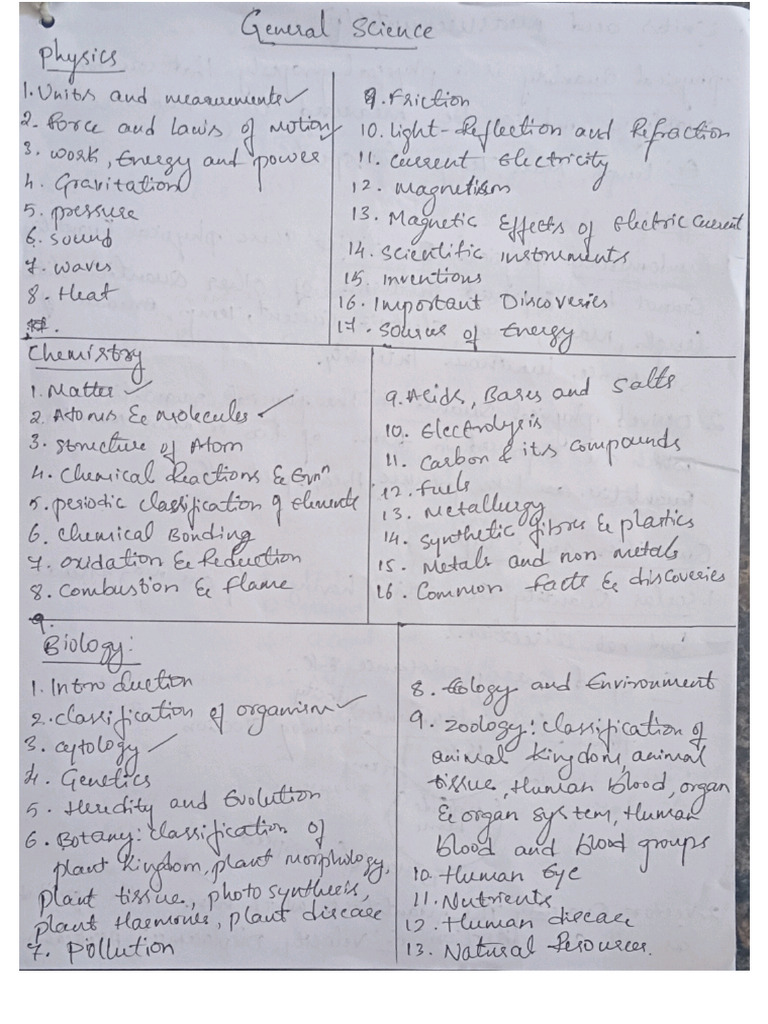 General Science
Physics
1. Units and measurements ✓
2. Force and laws of Motion ✓
3. Work, Energy and power
4. Gravitation
5. pressure
6. Sound
7. waves
8. Heat
9. Friction
10. Light-Reflection and Refraction
11. Current Electricity
12. Magnetism
13. Magnetic Effects of Electric Current
14. Scientific instruments
15. inventions
16. Important Discoveries
17. Sources of Energy
Chemistry
1. Matter ✓
2. Atoms & molecules ✓
3. Structure of Atom
4. Chemical Reactions & Eqnⁿ
5. periodic classification of Elements
6. Chemical Bonding
7. Oxidation & Reduction
8. Combustion & flame
9.
9. Acids, Bases and Salts
10. Electrolysis
11. Carbon & its compounds
12. Fuels
13. Metallurgy
14. Synthetic fibres & plastics
15. Metals and non metals
16. Common facts & discoveries
Biology:
1. Introduction
2. classification of organism ✓
3. cytology ✓
4. Genetics
5. Heredity and Evolution
6. Botany: classification of
plant kingdom, plant morphology,
plant tissue, photosynthesis,
plant Haemones, plant disease
7. Pollution
8. Ecology and Environment
9. Zoology: classification of
animal kingdom, animal
tissue, Human blood, organ
& organ system, Human
blood and blood groups
10. Human Eye
11. Nutrients
12. Human diseae
13. Natural Resources.